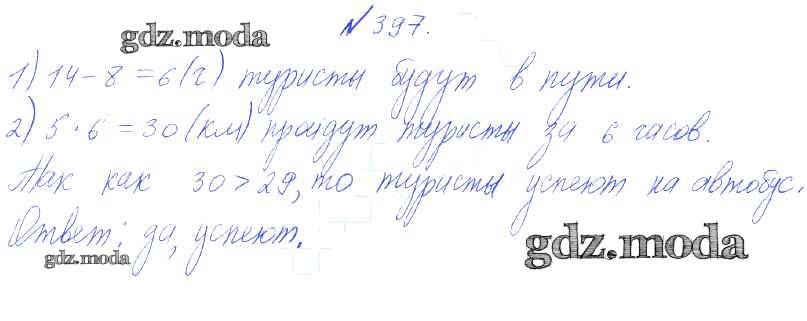 №397.
gdz.moda
1) 14-8=6(ч) туристы будут в пути.
2) 5·6=30(км) пройдут туристы за 6 часов.
Так как 30>29, то туристы успеют на автобус.
Ответ: да, успеют.
gdz.moda
gdz.moda